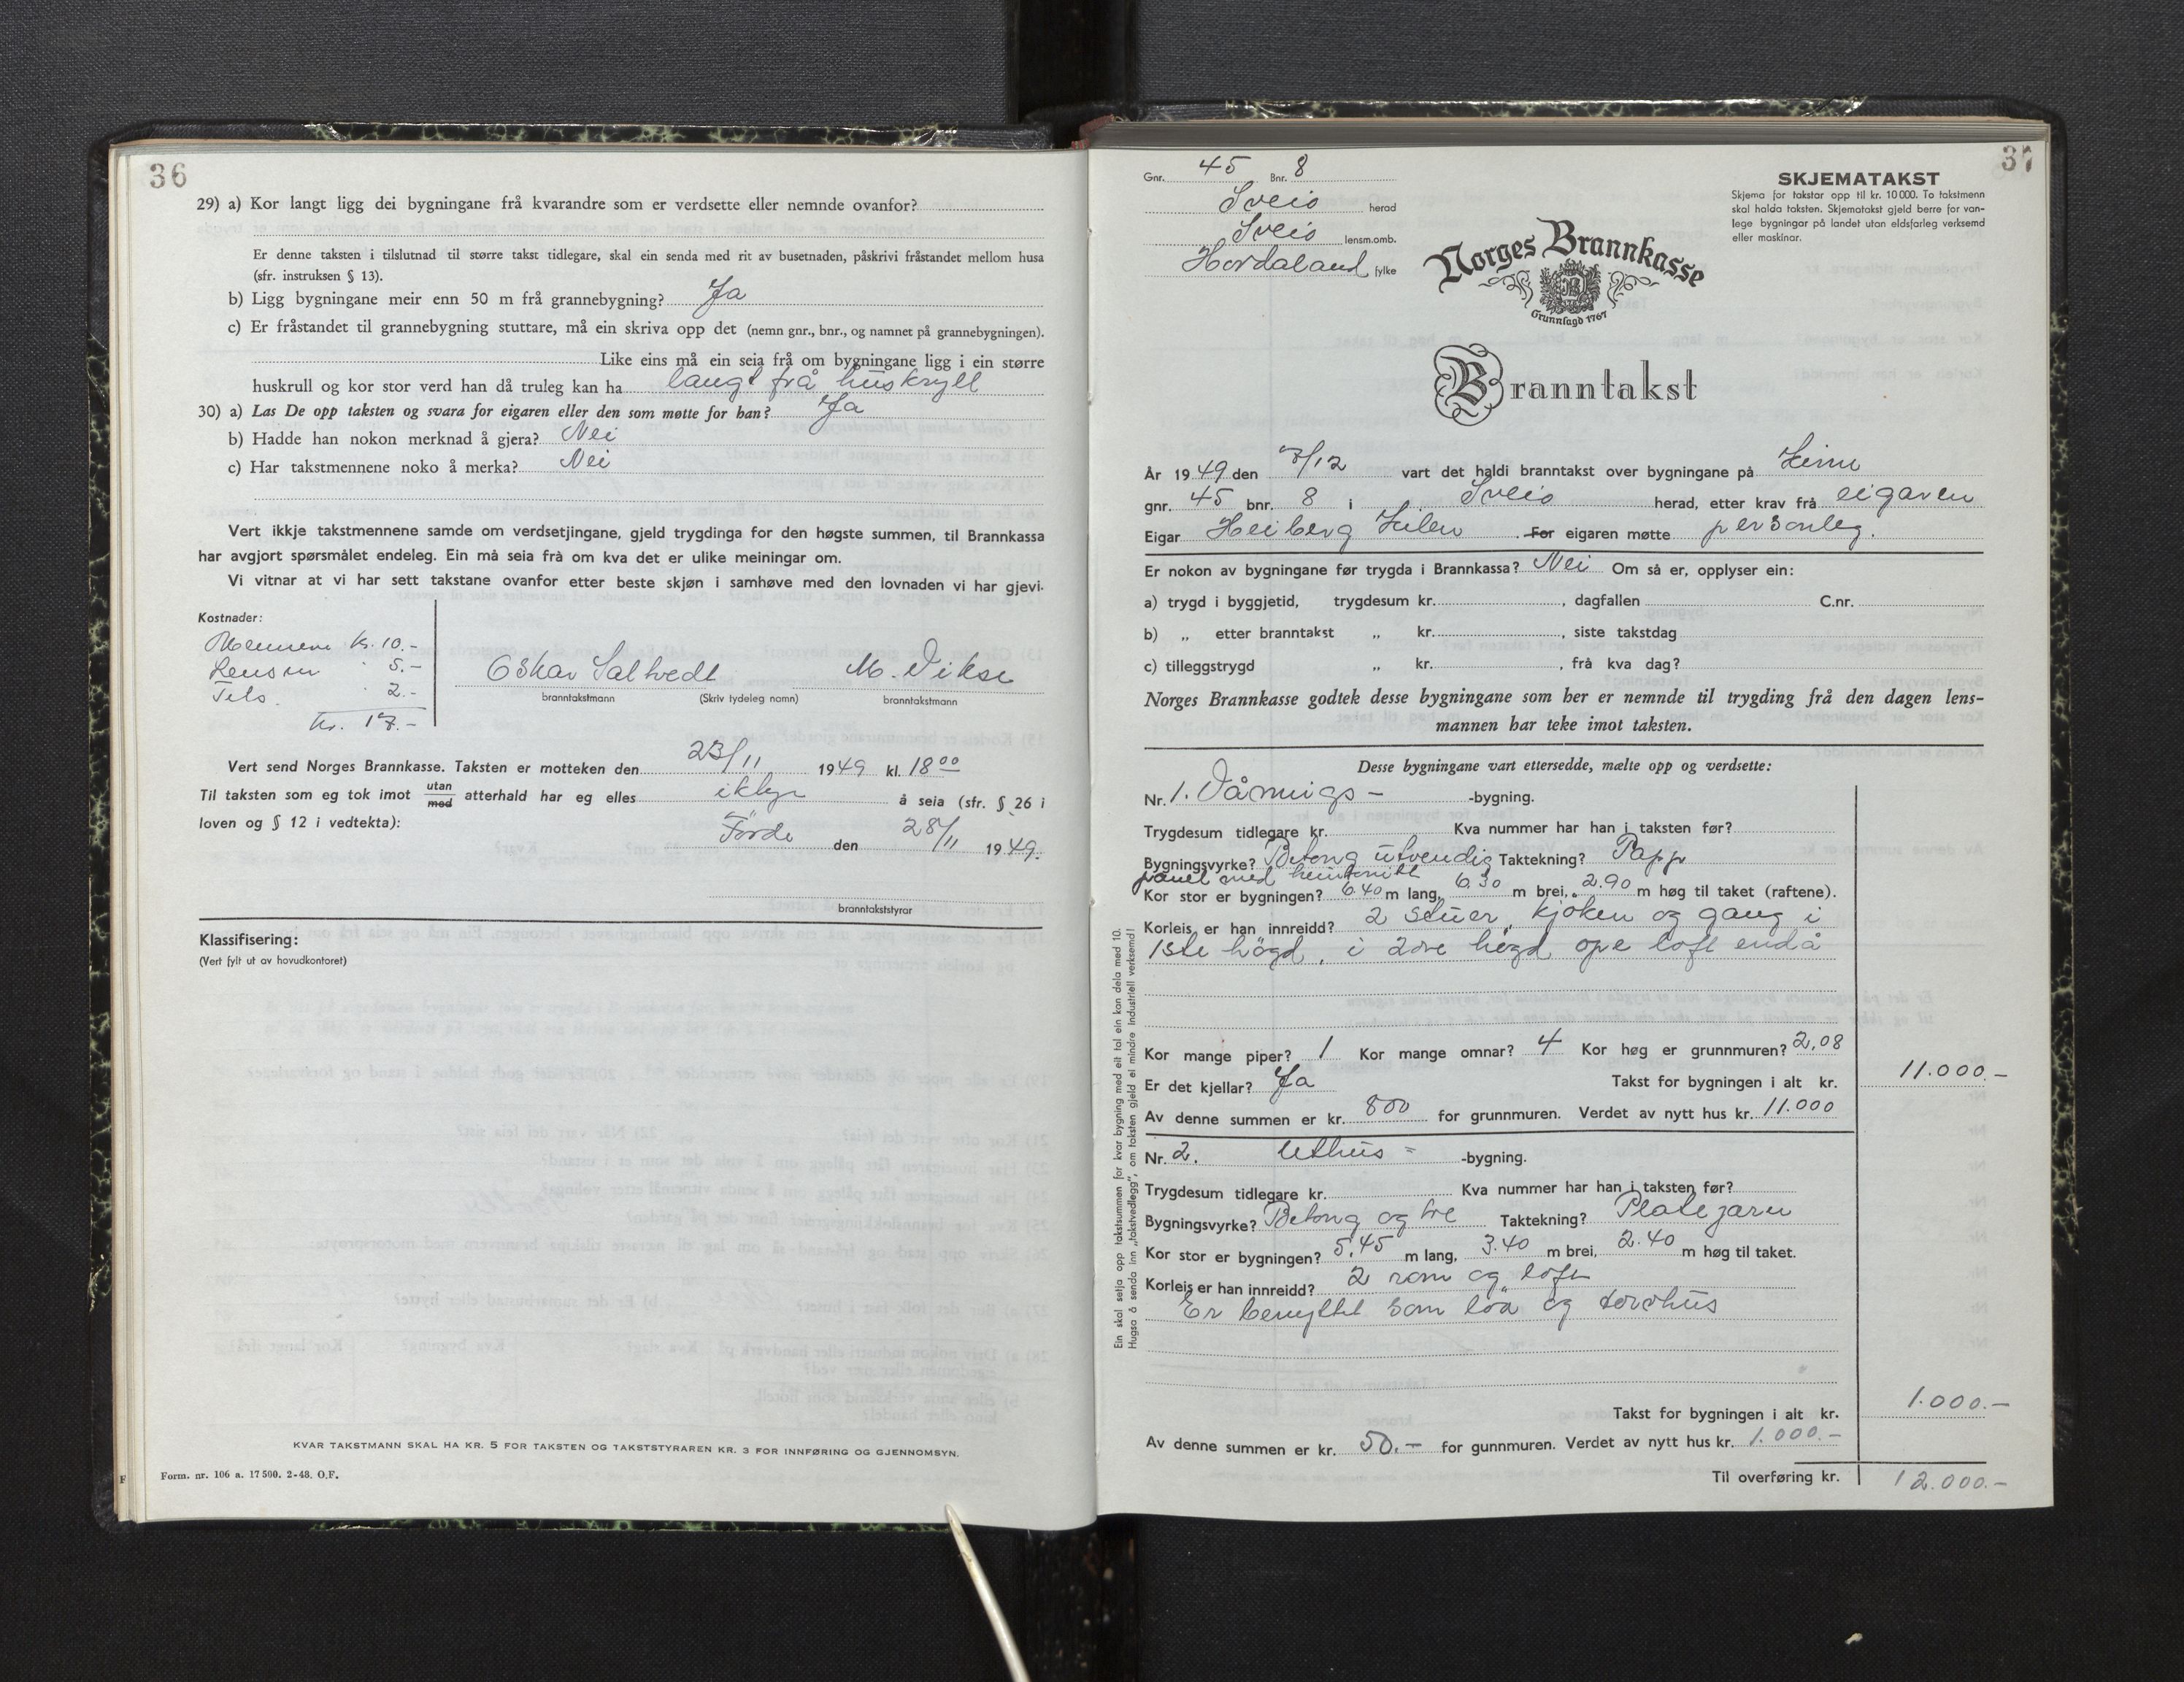 36
29) a) Kor langt ligg dei bygningane frå kvarandre som er verdsette eller nemnde ovanfor?
Er denne taksten i tilslutnad til større takst tidlegare, skal ein senda med rit av busetnaden, påskrivi fråstandet mellom husa
(sfr. instruksen § 13).
b) Ligg bygningane meir enn 50 m frå grannebygning? Ja
c) Er fråstandet til grannebygning stuttare, må ein skriva opp det (nemn gnr., bnr., og namnet på grannebygningen).
Like eins må ein seia frå om bygningane ligg i ein større
huskrull og kor stor verd han då truleg kan ha langt frå huskryll
30) a) Las De opp taksten og svara for eigaren eller den som møtte for han? Ja
b) Hadde han nokon merknad å gjera? Nei
c) Har takstmennene noko å merka? Nei
Vert ikkje takstmennene samde om verdsetjingane, gjeld trygdinga for den høgste summen, til Brannkassa
har avgjort spørsmålet endeleg. Ein må seia frå om kva det er ulike meiningar om.
Vi vitnar at vi har sett takstane ovanfor etter beste skjøn i samhøve med den lovnaden vi har gjevi.
Kostnader:
Mennene kr. 10.-
Lensm " 5.-
Tils. " 2.-
kr. 17.-
Oskar Saltvedt M. Vikse
branntakstmann (Skriv tydeleg namn) branntakstmann
Vert send Norges Brannkasse. Taksten er motteken den 23/11 1949 kl. 18 00
Til taksten som eg tok imot utan
med atterhald har eg elles ikkje å seia (sfr. § 26 i
loven og § 12 i vedtekta):
Förde den 28/11 1949.
branntakststyrar
Klassifisering:
(Vert fylt ut av hovudkontoret)
KVAR TAKSTMANN SKAL HA KR. 5 FOR TAKSTEN OG TAKSTSTYRAREN KR. 3 FOR INNFØRING OG GJENNOMSYN.
Form. nr. 106 a. 17 500. 2-48. O.F.
F
37
Gnr. 45 Bnr. 8
Sveio herad
Sveio lensm.omb.
Hordaland fylke
SKJEMATAKST
Skjema for takstar opp til kr. 10 000. To takstmenn
skal halda taksten. Skjematakst gjeld berre for van-
lege bygningar på landet utan eldsfarleg verksemd
eller maskinar.
Norges Brannkasse
Grunnlagd 1767
Branntakst
År 1949 den 7/12 vart det haldi branntakst over bygningane på
gnr. 45 bnr. 8 i Sveio herad, etter krav frå eigaren
Eigar Heiberg For eigaren møtte personleg.
Er nokon av bygningane før trygda i Brannkassa? Nei Om så er, opplyser ein:
a) trygd i byggjetid, trygdesum kr. , dagfallen C.nr.
b) „ etter branntakst „ kr. , siste takstdag
c) tilleggstrygd „ kr. , frå kva dag?
Norges Brannkasse godtek desse bygningane som her er nemnde til trygding frå den dagen lens-
mannen har teke imot taksten.
Desse bygningane vart ettersedde, mælte opp og verdsette:
Nr. 1. Vånings- -bygning.
Trygdesum tidlegare kr. Kva nummer har han i taksten før?
Bygningsvyrke? Betong utvendig Taktekning? Papp
panel med
Kor stor er bygningen? 6.40 m lang, 6.30 m brei, 2.90 m høg til taket (raftene).
Korleis er han innreidd? 2 stuer, kjöken og gang i
1ste högd, i 2dre högd ope loft endå
Kor mange piper? 1 Kor mange omnar? 4 Kor høg er grunnmuren? 2,08
Er det kjellar? Ja Takst for bygningen i alt kr. 11.000.-
Av denne summen er kr. 800 for grunnmuren. Verdet av nytt hus kr. 11.000
Nr. 2. Uthus- -bygning.
Trygdesum tidlegare kr. Kva nummer har han i taksten før?
Bygningsvyrke? Betong og tre Taktekning? Platejarn
Kor stor er bygningen? 5,45 m lang, 3.40 m brei, 2.40 m høg til taket.
Korleis er han innreidd? 2 rom og loft
Er benyttet som löa og torvhus
Takst for bygningen i alt kr. 1.000.-
Av denne summen er kr. 50.- for gunnmuren. Verdet av nytt hus kr. 1.000.-
Til overføring kr. 12.000.-
Ein skal setja opp takstsummen for kvar bygning med eit tal ein kan dela med 10.
Hugsa å senda inn „takstvedlegg", om taksten gjeld ei mindre industriell verksemd!